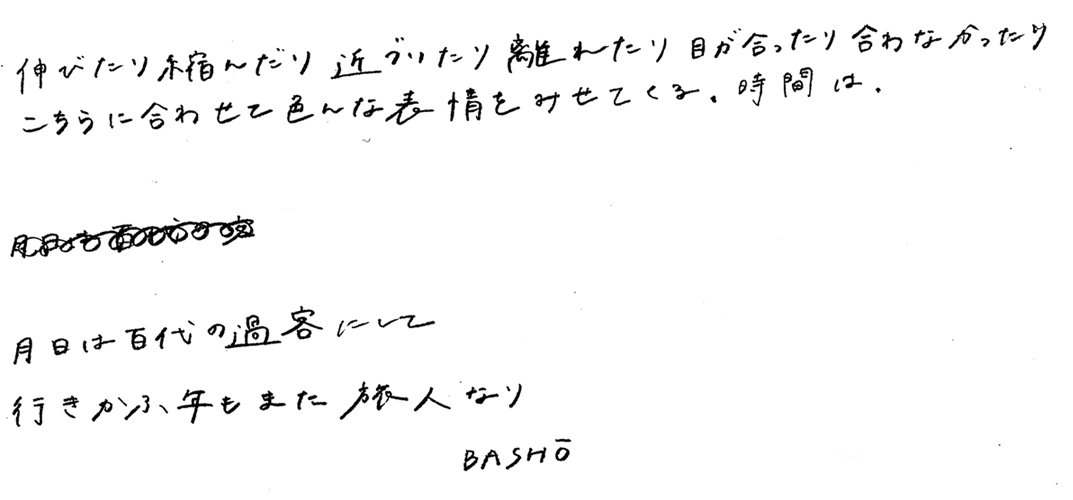 伸びたり縮んだり近づいたり離れたり目が合ったり合わなかったり
こちらに合わせて色んな表情をみせてくる。時間は.
月日は百代の過客にして
行きかふ、年もまた旅人なり
BASHŌ